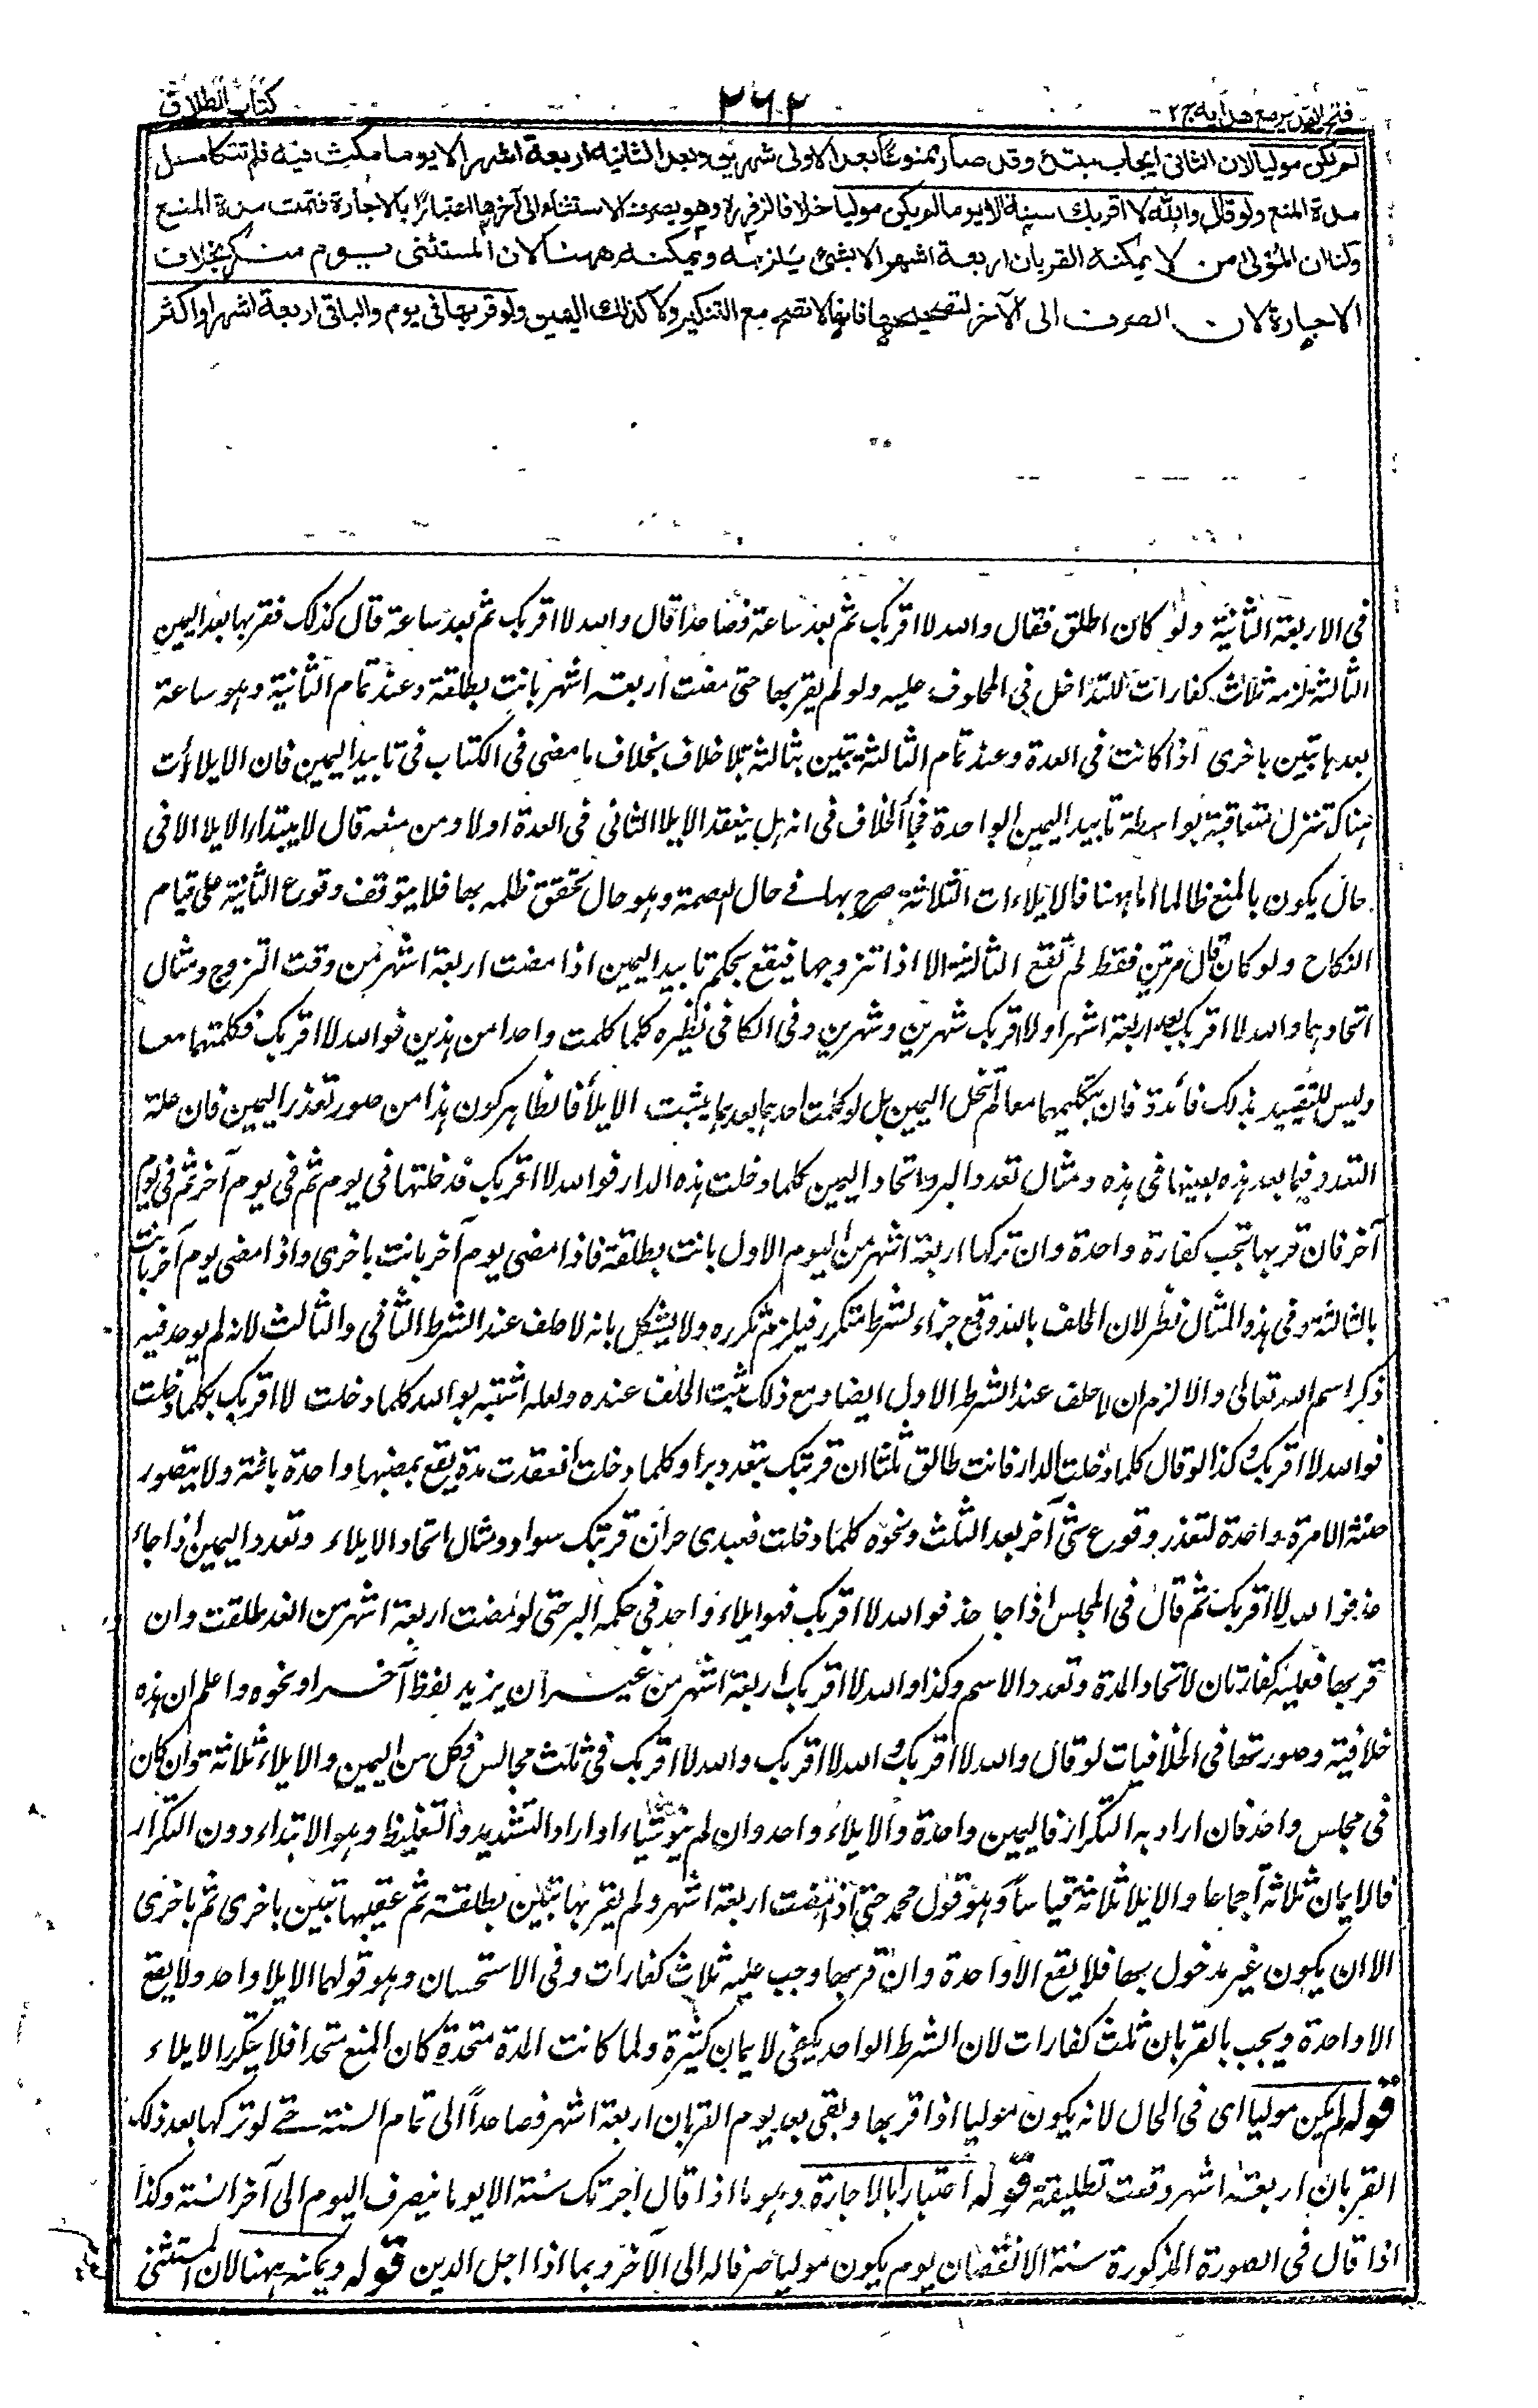 فتح القدير مع هدايه ج ٢
٢٦٢
كتاب الطلاق
لم يكن موليا لان الثاني ايجاب مبتدء وقد صار ممنوعا بعد الاولى شهرين وبعد الثانية اربعة اشهر الا يوما مكث فيه فلم تتكامل
مدة المنع ولو قال والله لا اقربك سنة الا يوما لم يكن موليا خلافا لزفر رح وهو يصرف الاستثناء الى آخرها اعتبارا بالاجارة فتمت مدة المنع
ولنا ان المولى من لا يمكنه القربان اربعة اشهر الا بشئ يلزمه ويمكنه ههنا لان المستثنى يوم منكر بخلاف
الاجارة لان الصرف الى الآخر لتصحيحها فانها لا تصح مع التنكير ولا كذلك اليمين ولو قربها في يوم والباقي اربعة اشهر او اكثر
في الاربعة الثانية ولو كان اطلق فقال والله لا اقربك ثم بعد ساعة فصاعدا قال والله لا اقربك ثم بعد ساعة قال كذلك فقربها بعد اليمين
الثالثة لزمه ثلاث كفارات للتداخل في المحلوف عليه ولو لم يقربها حتى مضت اربعة اشهر بانت بطلقة وعند تمام الثانية وهو ساعة
بعدها تبين باخرى اذا كانت في العدة وعند تمام الثالثة تبين بثالثة بلا خلاف بخلاف ما مضى في الكتاب في تابيد اليمين فان الايلاءات
هناك تنزل متعاقبة بواسطة تابيد اليمين الواحدة فجاء الخلاف في انه هل ينعقد الايلاء الثاني في العدة اولا ومن منعه قال لا يبتداء الايلاء الا في
حال يكون بالمنع ظالما اما ههنا فالايلاءات الثلاثة صرح بها في حال العصمة وهو حال تحقق ظلمه بها فلا يتوقف وقوع الثانية على قيام
النكاح ولو كان قال مرتين فقط لم تقع الثالثة الا اذا تزوجها فيقع بحكم تابيد اليمين اذا مضت اربعة اشهر من وقت التزوج ومثال
اتحادهما والله لا اقربك بعد اربعة اشهر او لا اقربك شهرين وشهرين وفي الكافي نظيره كلما كلمت واحدا من هذين فوالله لا اقربك فكلمتهما معا
وليس للتقييد بذلك فائدة فان بتكليمهما معا لم تنحل اليمين بل لو كلمت احدهما بعدهما يثبت الايلاء فالظاهر كون هذا من صور تعذر اليمين فان علة
التعدد فيما بعد هذه بعينها في هذه ومثال تعدد البر واتحاد اليمين كلما دخلت هذه الدار فوالله لا اقربك فدخلتها في يوم ثم في يوم آخر ثم في يوم
آخر فان قربها تجب كفارة واحدة وان تركها اربعة اشهر من اليوم الاول بانت بطلقة فاذا مضى يوم آخر بانت باخرى واذا مضى يوم آخر بانت
بالثالثة وفي هذا المثال نظر لان الحلف بالله وقع جزاء لشرط متكرر فيلزم تكرره ولا يشكل بانه لا حلف عند الشرط الثاني والثالث لانه لم يوجد فيه
ذكر اسم الله تعالى والا لزم ان لا حلف عند الشرط الاول ايضا ومع ذلك ثبت الحلف عنده ولعله اشتبه بوالله كلما دخلت لا اقربك بكلما دخلت
فوالله لا اقربك وكذا لو قال كلما دخلت الدار فانت طالق ثلثا ان قربتك بتعدد برا وكلما دخلت انعقدت مدة يقع بمضيها واحدة بائنة ولا يتصور
حنثه الا مرة واحدة لتعذر وقوع شئ آخر بعد الثلث ونحوه كلما دخلت فعبدي حر ان قربتك سواء ومثال اتحاد الايلاء وتعدد اليمين اذا جاء
غد فوالله لا اقربك ثم قال في المجلس اذا جاء غد فوالله لا اقربك فهو ايلاء واحد في حكم البر حتى لو مضت اربعة اشهر من الغد طلقت وان
قربها فعليه كفارتان لاتحاد المدة وتعدد الاسم وكذا والله لا اقربك اربعة اشهر من غير ان يزيد لفظ آخر او نحوه واعلم ان هذه
خلافية وصورتها في الخلافيات لو قال والله لا اقربك والله لا اقربك والله لا اقربك في ثلث مجالس فكل من اليمين والايلاء ثلاثة وان كان
في مجلس واحد فان اراد به التكرار فاليمين واحدة والايلاء واحد وان لم ينو شياء او اراد التشديد والتغليظ وهو الابتداء دون التكرار
فالايمان ثلاثة اجماعا والايلاء ثلاثة قياسا وهو قول محمد حتى اذا مضت اربعة اشهر ولم يقربها تبين بطلقة ثم عقيبها تبين باخرى ثم باخرى
الا ان يكون غير مدخول بها فلا يقع الا واحدة وان قربها وجب عليه ثلاث كفارات وفي الاستحسان وهو قولهما الايلاء واحد ولا يقع
الا واحدة ويجب بالقربان ثلث كفارات لان الشرط الواحد يكفي لايمان كثيرة ولما كانت المدة متحدة كان المنع متحدا فلا يتكرر الايلاء
قوله لم يكن موليا اى في الحال لانه يكون موليا اذا قربها وبقى بعد يوم القربان اربعة اشهر فصاعدا الى تمام السنة حتى لو تركها بعد ذلك
القربان اربعة اشهر وقعت تطليقة قوله اعتبارا بالاجارة وهو ما اذا قال اجرتك سنة الا يوما ينصرف اليوم الى آخر السنة وكذا
اذا قال في الصورة المذكورة سنة الا نقصان يوم يكون موليا صرفا له الى الآخر وبما اذا اجل الدين قوله ويمكنه ههنا لان المستثنى